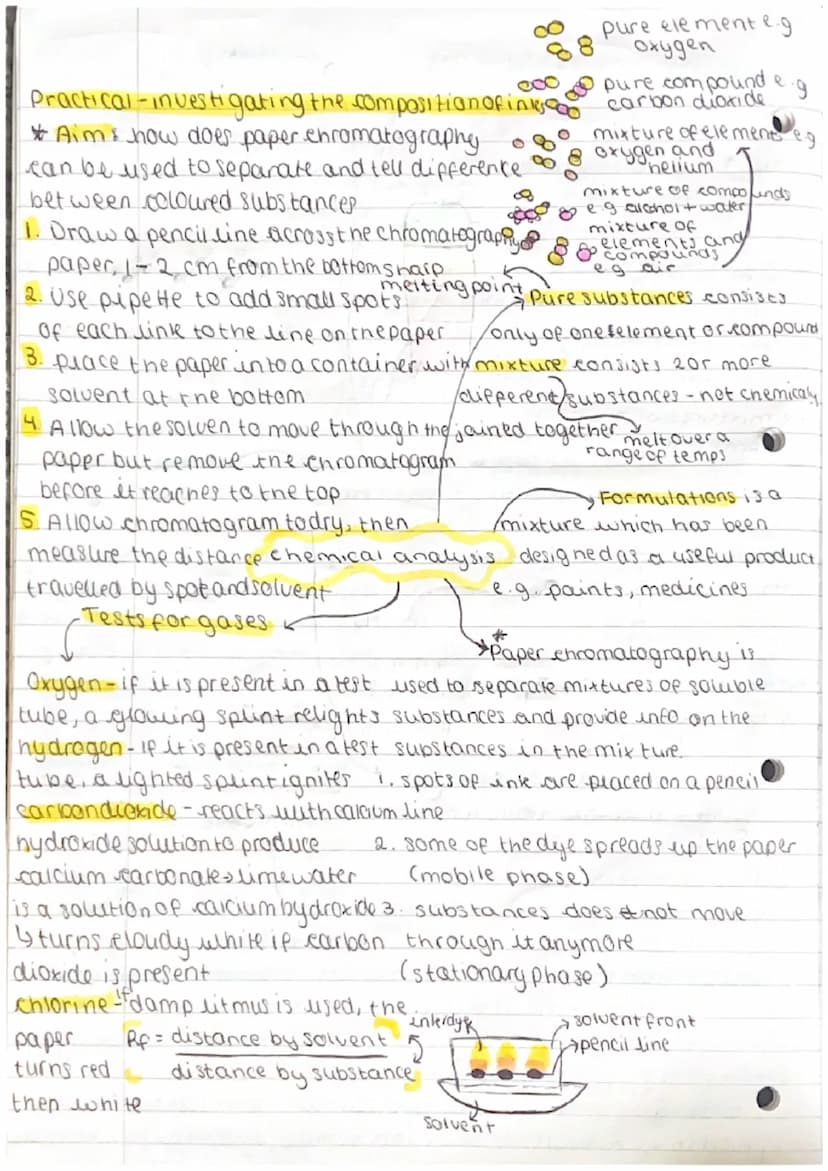 pure element e.g
oxygen
pure compound e.g
carbon dioxide
mixture of element e.g
oxygen and
helium
mixture of compounds
e.g alcohol + water
mixture of
elements and
compounds
e.g air
Practical - investigating the composition of inks
* Aim: how does paper chromatography
can be used to separate and tell difference
between coloured substances
1. Draw a pencil line across the chromatography
paper, 1 - 2 cm from the bottom
2. Use pipette to add small spots
of each link to the line on the paper
3. place the paper into a container with
solvent at the bottom
4 Allow the solven to move through the
paper but remove the chromatogram
before it reaches to the top
5 Allow chromatogram to dry, then
measure the distance
travelled by spot and solvent
sharp
melting point
Pure substances consists
only of one element or compound
mixture consists 2 or more
different substances - not chemicaly
joined together
melt over a
range of temps
Formulations is a
mixture which has been
designed as a useful product
e.g. paints, medicines
chemical analysis
Tests for gases
Oxygen - if it is present in a test
tube, a glowing splint relights
hydrogen - if it is present in a test
tube, a lighted splint ignites
carbon dioxide - reacts with calcium
hydroxide solution to produce
calcium carbonate → limewater
is a solution of calcium hydroxide
↳ turns cloudy white if carbon
dioxide is present
chlorine - If damp litmus is used, the
paper
turns red
then white
* Paper chromatography is
used to separate mixtures of soluble
substances and provide info on the
substances in the mixture.
1. spots of ink are placed on a pencil
line
2. some of the dye spreads up the paper
(mobile phase)
3. substances does not move
through it anymore
(stationary phase)
Rf = distance by solvent
distance by substance
ink/dye
solvent front
pencil line
solvent